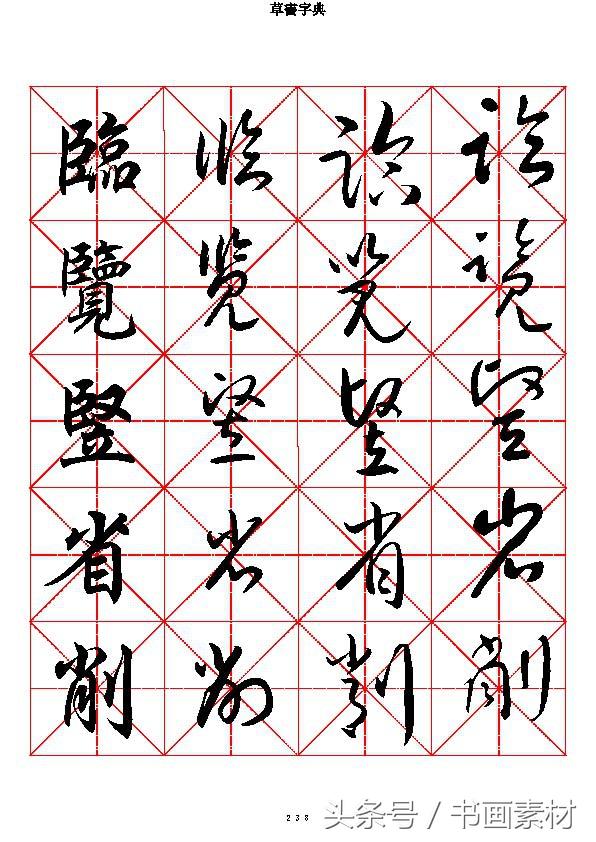 草書字典
臨 临 临 临
覽 览 览 览
豎 竖 竖 竖
省 省 省 省
削 削 削 削
238
头条号 / 书画素材